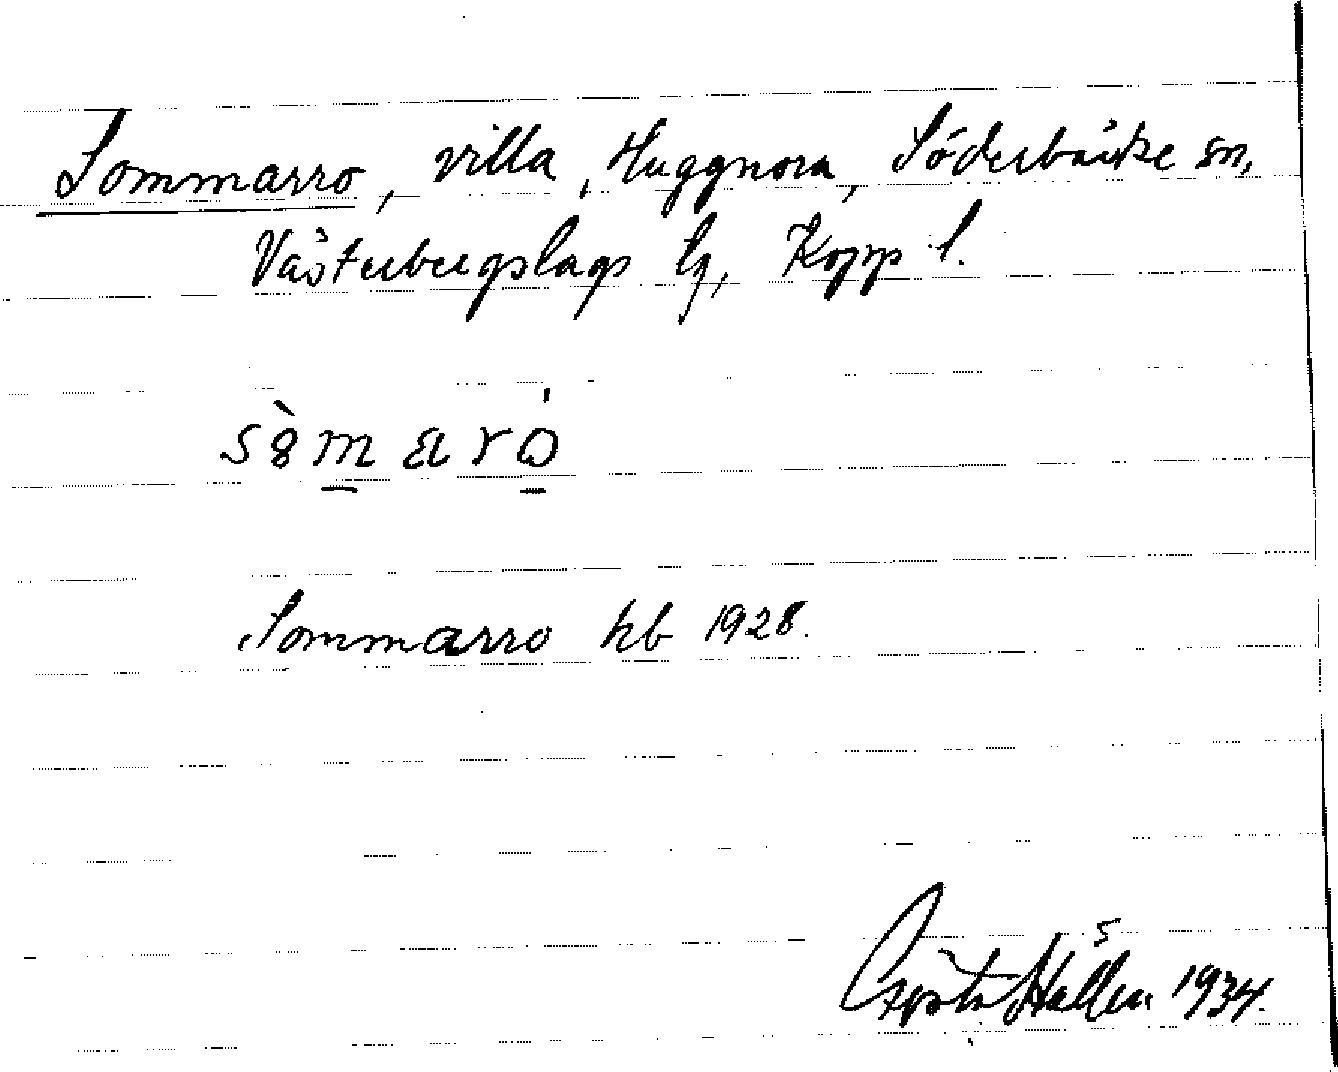 Sommarro, villa, Huggnora, Söderbärke sn,
Västerbergslags tg, Kopp l.
Sommarro kb 1928.
Gösta Hallén 1934.